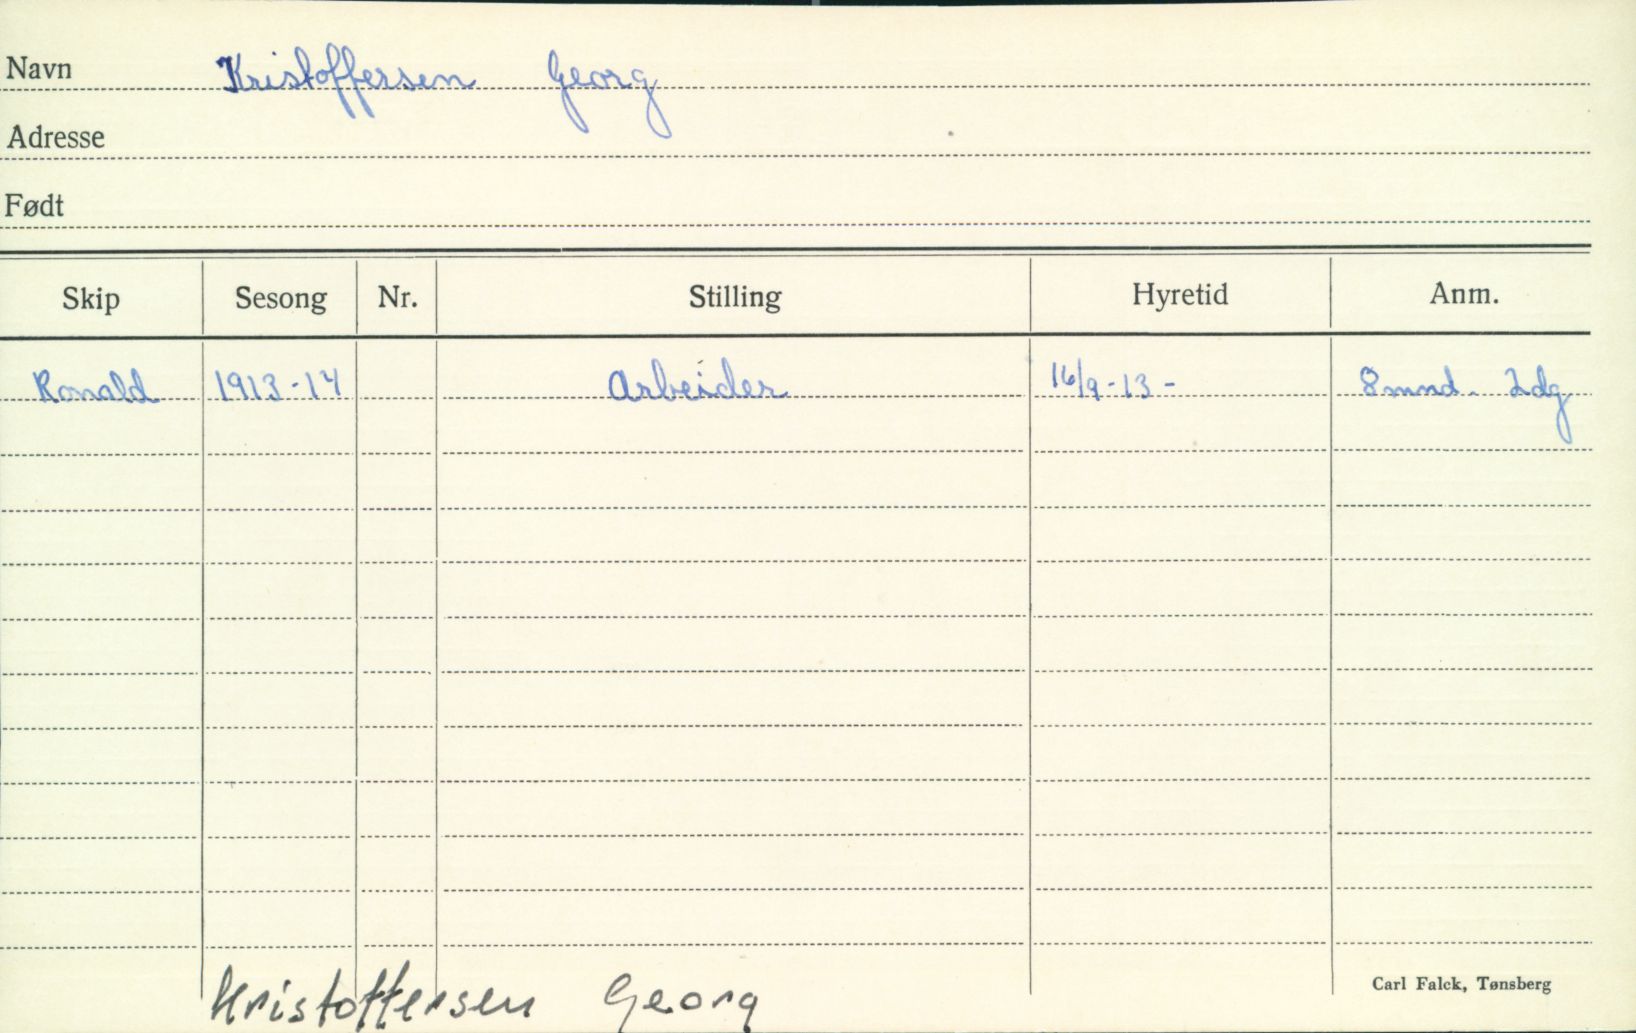 Navn Kristoffersen Georg
Adresse
Født
Skip Sesong Nr. Stilling Hyretid Anm.
Ronald 1913-14 Arbeider 16/9-13- 8 mnd. 2dg
Carl Falck, Tønsberg
Kristoffersen Georg